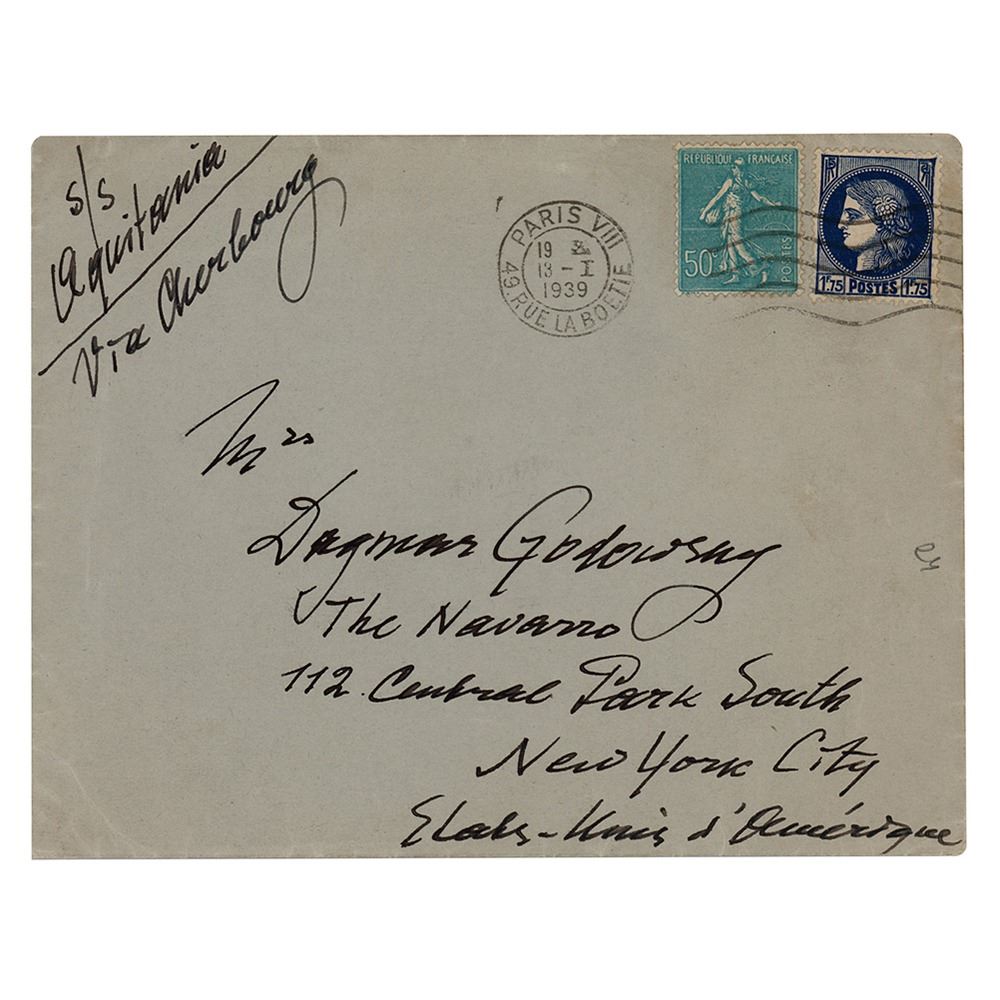 s/s
Aquitania
Via Cherbourg
PARIS VIII
19
13 - I
1939
49. RUE LA BOETIE
RÉPUBLIQUE FRANÇAISE
50c
POSTES
1F75 POSTES 1F75
Mrs
Dagmar Godowsky
The Navarro
112 Central Park South
New York City
Etats-Unis d'Amérique